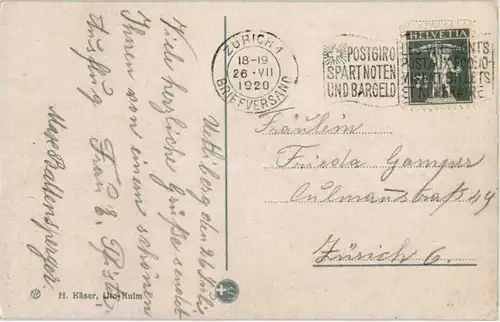 Uetliberg den 26 Juli
Viele herzliche Grüße sendet
Ihnen von einem schönen
Ausflug Frau E. Pfister.
Max Baltensperger.
ZÜRICH 1
18-19
26 · VII
1920
BRIEFVERSAND
POSTGIRO
SPART NOTEN
UND BARGELD
HELVETIA
Fräulein
Frieda Gamper
Culmannstraße 49
Zürich 6.
H. Käser, Uto-Kulm